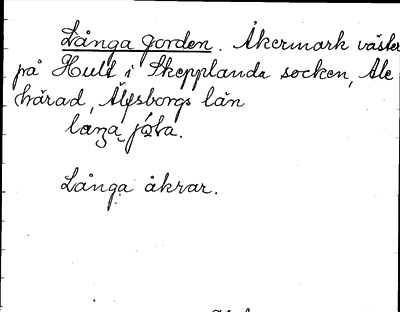 Långa jorden. Åkermark väster
på Hult i Skepplanda socken, Ale
härad, Älfsborgs län

Långa åkrar.